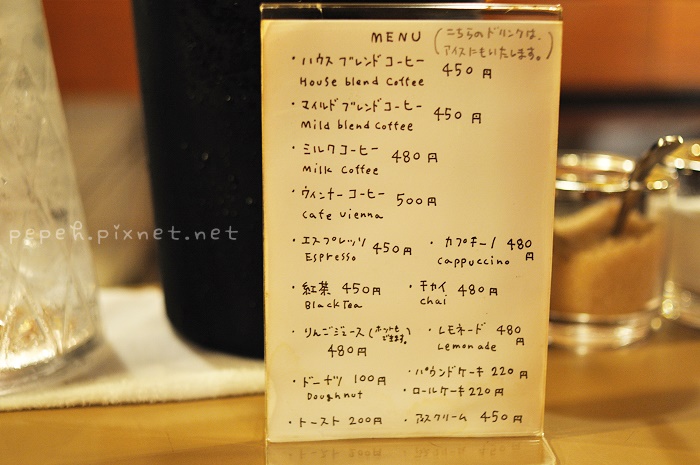 MENU
(こちらのドリンクは、
アイスにもいたします。)
・ハウスブレンドコーヒー 450円
House blend Coffee
・マイルドブレンドコーヒー 450円
Mild blend Coffee
・ミルクコーヒー 480円
Milk Coffee
・ウィンナーコーヒー 500円
Cafe vienna
・エスプレッソ 450円
Espresso
・カプチーノ 480円
Cappuccino
・紅茶 450円
Black Tea
・チャイ 480円
chai
・りんごジュース (ホットも
できます。)
480円
・レモネード 480円
Lemonade
・ドーナツ 100円
Doughnut
・パウンドケーキ 220円
・ロールケーキ 220円
・トースト 200円
・アイスクリーム 450円
pepeh.pixnet.net